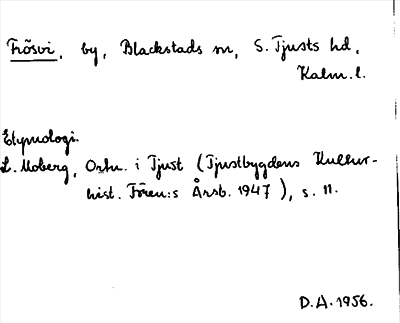 Frösvi, by, Blackstads sn, S. Tjusts hd,
Kalm. l.
Etymologi.
L. Moberg, Ortn. i Tjust (Tjustbygdens Kultur-
hist. Fören:s Årsb. 1947), s. 11.
D.A. 1956.